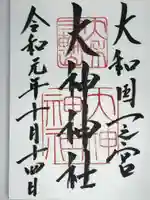 大和國一之宮
大神神社
令和元年十月十四日